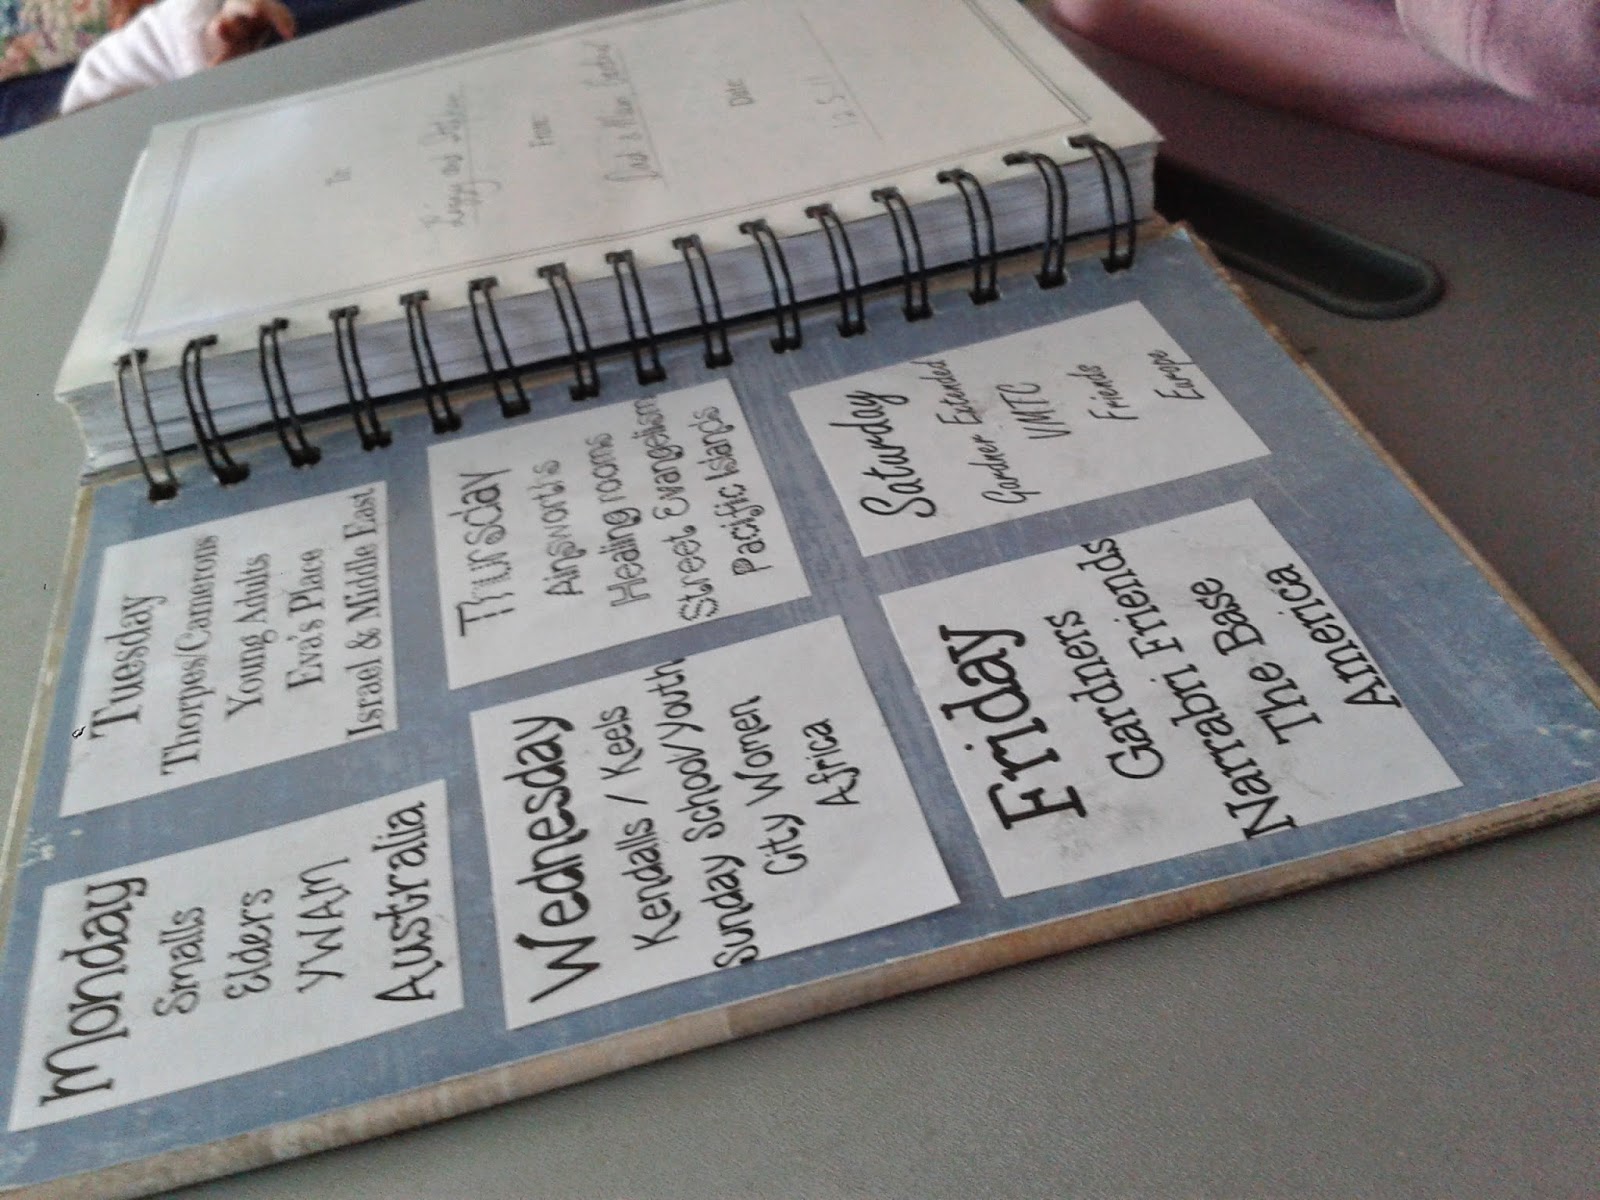 To:
and
From:
Dad &
Date
12.5.11
Monday
Smalls
Elders
YWAM
Australia
Tuesday
Thorpes/Camerons
Young Adults
Eva's Place
Israel & Middle East
Wednesday
Kendalls / Keels
Sunday School/Youth
City Women
Africa
Thursday
Ainsworths
Healing rooms
Street Evangelism
Pacific Islands
Friday
Gardners
Narrabri Friends
The Base
America
Saturday
Gardner Extended
VMTC
Friends
Europe